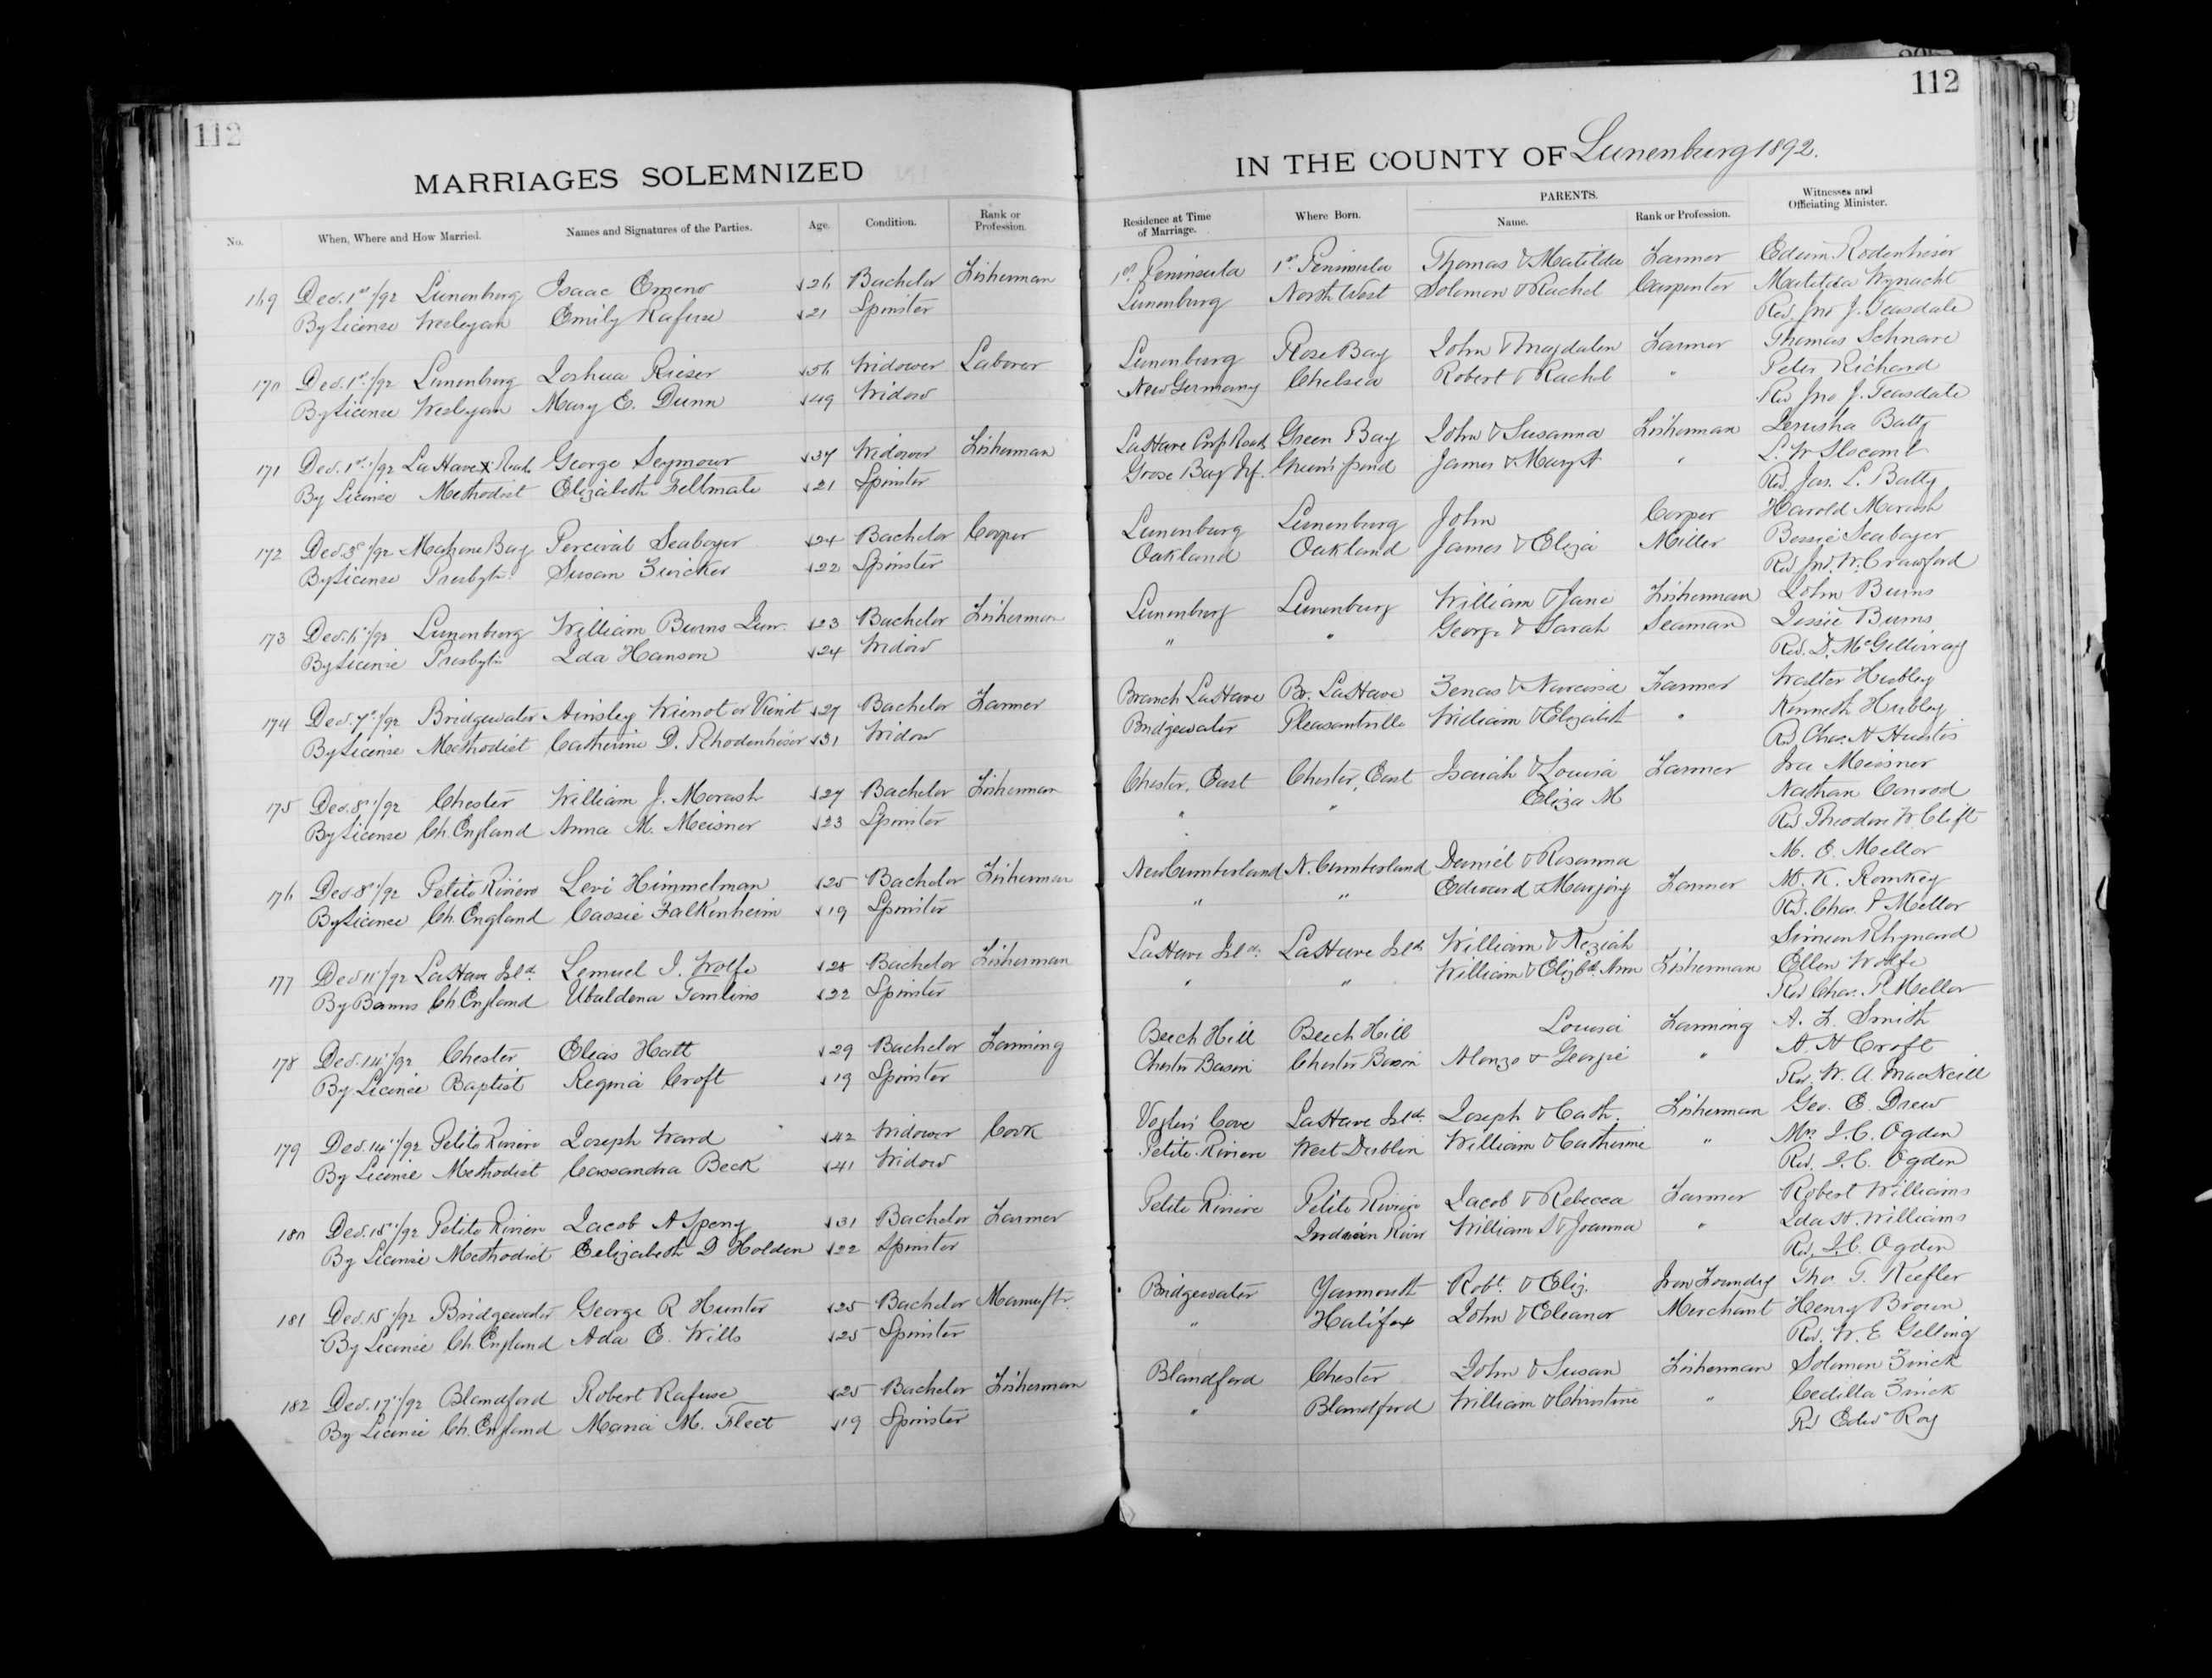 112
MARRIAGES SOLEMNIZED
No. When, Where and How Married. Names and Signatures of the Parties. Age. Condition. Rank or Profession.
169 Dec. 1st/92 Lunenburg Isaac Emeno 26 Bachelor Fisherman
By License Wesleyan Emily Rafuse 21 Spinster
170 Dec. 1st/92 Lunenburg Joshua Rieser 56 Widower Laborer
By License Wesleyan Mary E. Dunn 49 Widow
171 Dec. 1st/92 LaHave X Roads George Seymour 37 Widower Fisherman
By License Methodist Elizabeth Feltmate 21 Spinster
172 Dec. 3d/92 Mahone Bay Percival Seaboyer 24 Bachelor Cooper
By License Presbytn. Susan Zwicker 22 Spinster
173 Dec. 6/92 Lunenburg William Burns Junr. 23 Bachelor Fisherman
By License Presbytn Ida Hanson 24 Widow
174 Dec. 7/92 Bridgewater Ainsley Wienot or Vienot 27 Bachelor Farmer
By License Methodist Catherine D. Rhodenhiser 31 Widow
175 Dec. 8/92 Chester William J. Morash 27 Bachelor Fisherman
By License Ch. England Anna M. Meisner 23 Spinster
176 Dec. 8/92 Petite Riviere Levi Himmelman 25 Bachelor Fisherman
By License Ch. England Cassie Falkenheim 19 Spinster
177 Dec 11/92 LaHave Isld. Lemuel I. Wolfe 28 Bachelor Fisherman
By Banns Ch. England Ubaldena Tomlins 22 Spinster
178 Dec. 14/92 Chester Elias Hatt 29 Bachelor Farming
By License Baptist Regina Croft 19 Spinster
179 Dec. 14/92 Petite Riviere Joseph Ward 42 Widower Cook
By License Methodist Cassandra Beck 41 Widow
180 Dec. 15/92 Petite Riviere Jacob A Speny 31 Bachelor Farmer
By License Methodist Eelizabeth D Holden 22 Spinster
181 Dec. 15/92 Bridgewater George R. Hunter 25 Bachelor Manuftr.
By License Ch. England Ada E. Wills 25 Spinster
182 Dec. 17/92 Blandford Robert Rafuse 25 Bachelor Fisherman
By License Ch. England Maria M. Fleet 19 Spinster
112
IN THE COUNTY OF Lunenburg 1892.
Residence at Time of Marriage. Where Born. PARENTS. Name. Rank or Profession. Witnesses and Officiating Minister.
1st Peninsula 1st Peninsula Thomas & Matilda Farmer Edwin Rodenhiser
Lunenburg North West Solomon & Rachel Carpenter Matilda Wynacht
Rev. Jno J. Teasdale
Lunenburg Rose Bay John & Magdalen Farmer Thomas Schnare
New Germany Chelsea Robert & Rachel " Peter Richard
Rev Jno J. Teasdale
LaHave Roads Green Bay John & Susanna Fisherman Jerusha Batty
Goose Bay Nf. pond James & Mary A " L. W Slocomb
Rev. Jas. L. Batty
Lunenburg Lunenburg John Cooper Harold Morash
Oakland Oakland James & Eliza Miller Bessie Seaboyer
Rev. Jno. W. Crawford
Lunenburg Lunenburg William & Jane Fisherman John Burns
" " George & Sarah Seaman Jessie Burns
Rev. D. McGillivray
Branch LaHave Br. LaHave Zenas & Narcissa Farmer Walter Hubley
Bridgewater Pleasantville William & Elizabeth " Kenneth Hubley
Rev. Chas. H Huestis
Chester, East Chester, East Isaiah & Louisa Farmer Ira Meisner
" " Eliza M Nathan Conrod
Rev. Theodore W. Clift
New Cumberland N. Cumberland Daniel & Rosanna M. E. Mellor
" " Edward & Marjory Farmer M. K. Romkey
Rev. Chas. P Mellor
LaHave Isld. LaHave Isld William & Keziah Simeon Rhynard
" " William & Elizbt. Ann Fisherman Ellen Wolfe
Rev Chas. P. Mellor
Beech Hill Beech Hill Louisa Farming A. F. Smith
Chester Basin Chester Basin Alonzo & Georgie " A. H Croft
Rev. W. A. MacNeill
Voglers Cove LaHave Isld. Joseph & Cath. Fisherman Geo. E. Drew
Petite Riviere West Dublin William & Catherine " Mrs J. C. Ogden
Rev. J. C. Ogden
Petite Riviere Petite Riviere Jacob & Rebecca Farmer Robert Williams
Indian River William S & Joanna " Ida H. Williams
Rev. J. C. Ogden
Bridgewater Yarmouth Robt. & Eliz. Iron Foundry Tho. T. Keefler
" Halifax John & Eleanor Merchant Henry Brown
Rev. W. E. Gelling
Blandford Chester John & Susan Fisherman Solomon Zinck
" Blandford William & Christine " Cedilla Zinck
Rev Edw Roy